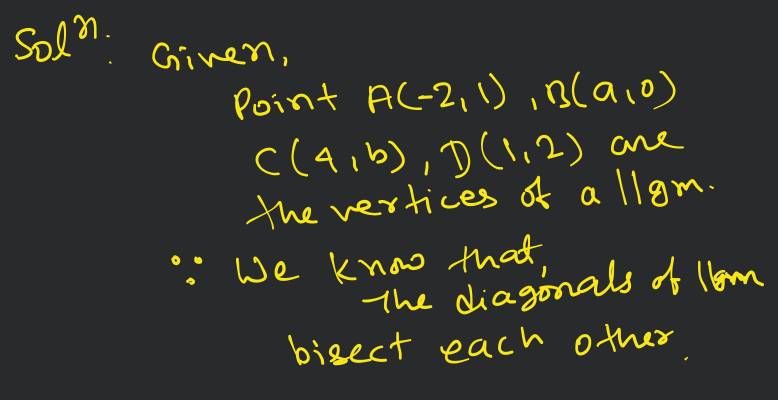 Solⁿ: Given,
Point A(-2,1), B(a,0)
C(4,b), D(1,2) are
the vertices of a llgm.
∵ We know that,
the diagonals of llgm
bisect each other.